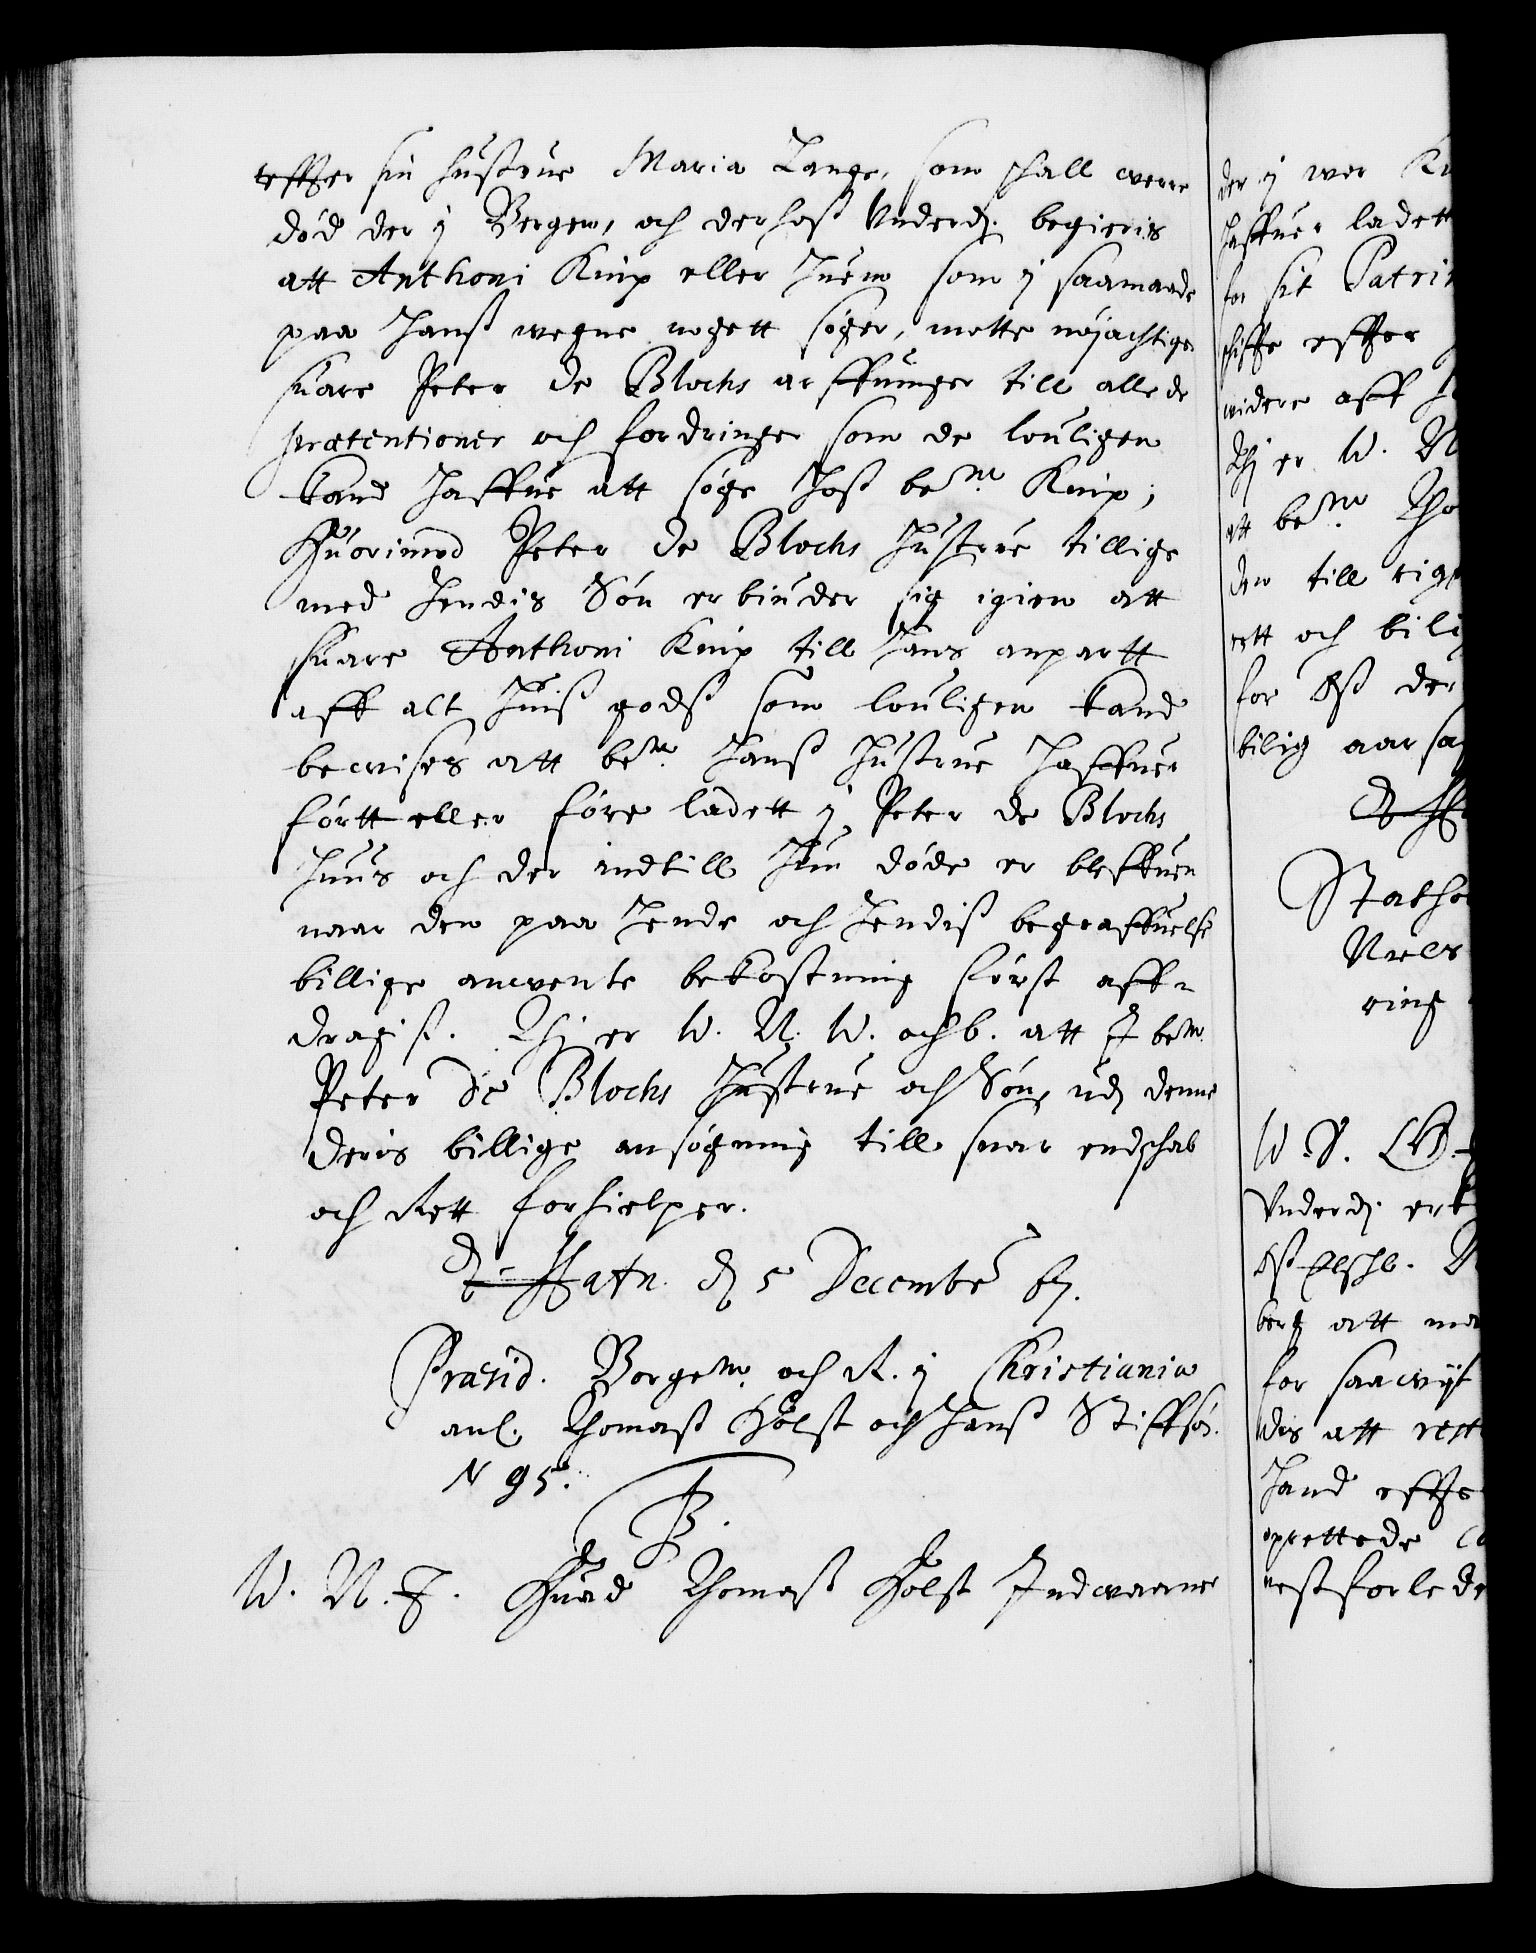 effter sin hustrue Maria Lange, som schall werre
død der ij Bergen, och derhoß Underd: begieris
att Anthoni Knip eller huem som ij saamaade
paa hanß wegne nogett søger, motte nøjachtige
suare Peter de Blochs arffuinger till alle de
prætentioner och fordringer som de louligen
kand haffue att søge hoß bem: Knip;
Huorimod Peter de Blochs hustrue tillige
med hendis Søn erbiuder sig igien att
suare Anthoni Knip till hans anpartt
aff alt huiß godß som louligen kand
bewises att bem: hanß hustrue haffuer
førtt eller føre ladett ij Peter de Blochs
huus och der indtill hun døde er bleffuen
naar den paa hende och hendiß begraffuelse
billige anwente bekostning først aff-
dragist. Thj er W. N. W. och b. att I bem:
Peter de Blochs hustrue och Søn, udj denne
deris billige ansøgning till snar endschab
och Rett forhielper.
Hafn. d 5 Decembr 67.
Præsid. Borgem. och R. ij Christiania
anl. Thomaß Holst och hanß Stiffsø:
N 95.
W. N. F. Huad Thomaß Holst Indwaaner
der ij wor
haffuer ladett
for sit
effter
widere aff
Thj er W. N
att bem:
den till
rett och
for Oß
bilig
Niels
ring
W. S.
Underd:
berg att
for saawijt
dis att rett
hand effte
oprettede
nestforlede